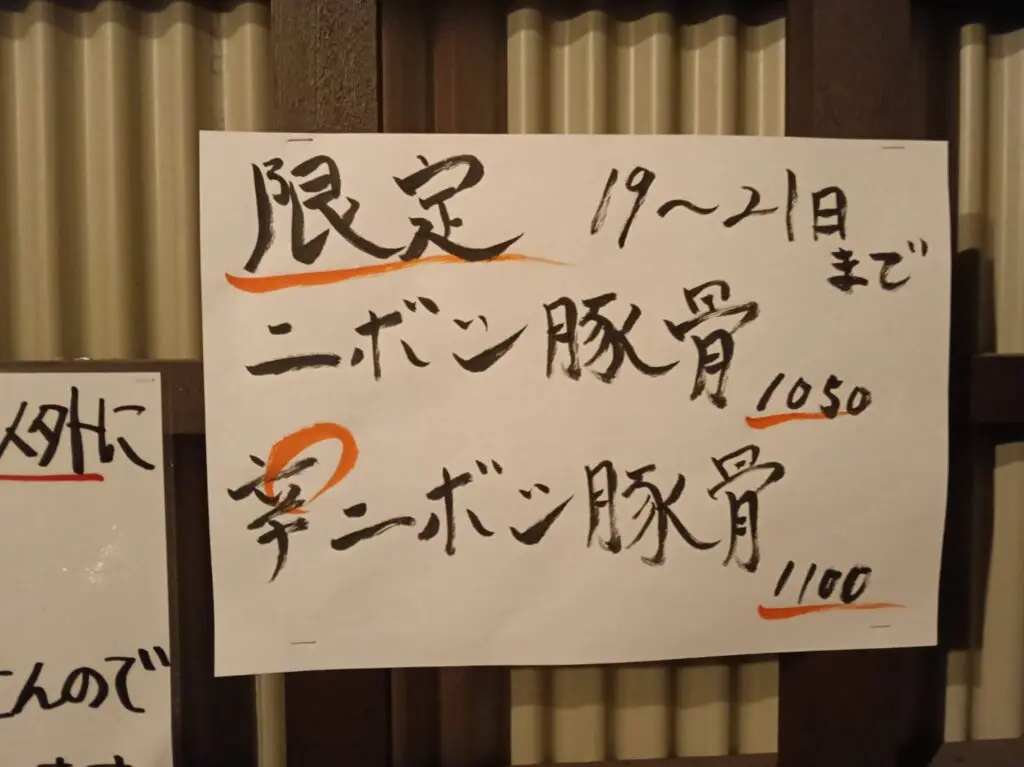 限定 19～21日
まで
ニボシ豚骨
1050
辛ニボシ豚骨
1100
メタ外に
んので